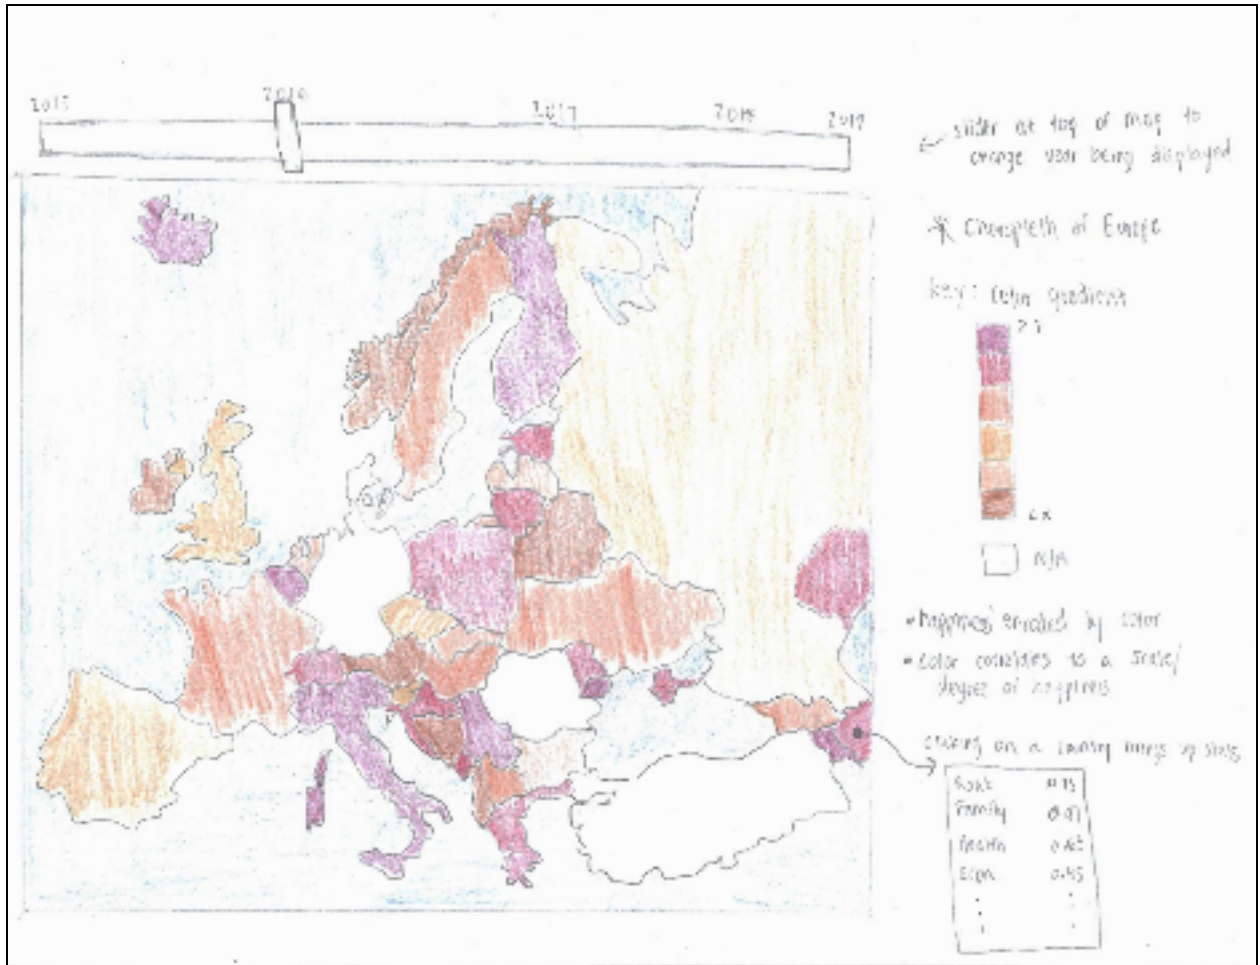 2015 2016 2017 2018 2019
slider at top of map to
change year being displayed
* Choropleth of Europe
key: color gradient
N/A
• happiness encoded by color
• color correlates to a scale/
degree of happiness
clicking on a country brings up stats
Family
Health
Econ 0.45